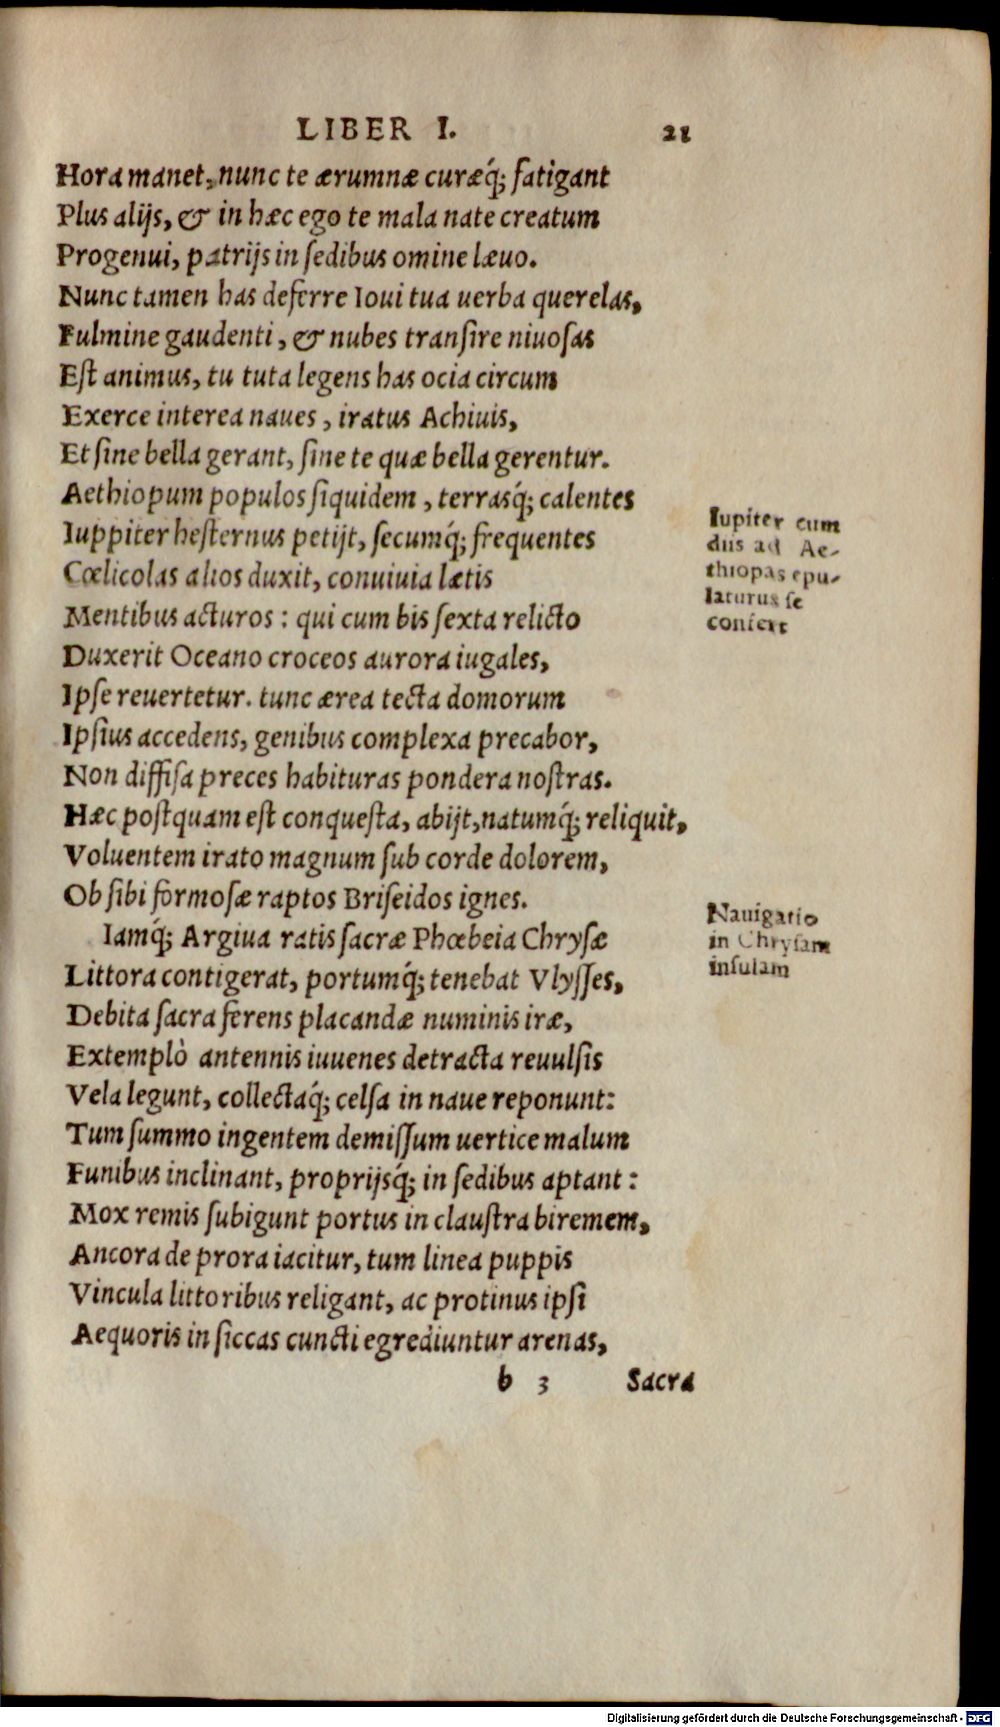 LIBER I. 21
Hora manet, nunc te ærumnæ curæq́; fatigant
Plus alijs, & in hæc ego te mala nate creatum
Progenui, patrijs in ſedibus omine læuo.
Nunc tamen has deferre Ioui tua uerba querelas,
Fulmine gaudenti, & nubes tranſire niuoſas
Eſt animus, tu tuta legens has ocia circum
Exerce interea naues, iratus Achiuis,
Et ſine bella gerant, ſine te quæ bella gerentur.
Aethiopum populos ſiquidem, terrasq́; calentes
Iuppiter heſternus petijt, ſecumq́; frequentes
Cœlicolas alios duxit, conuiuia lætis
Mentibus acturos: qui cum bis ſexta relicto
Duxerit Oceano croceos aurora iugales,
Ipſe reuertetur. tunc ærea tecta domorum
Ipſius accedens, genibus complexa precabor,
Non diffiſa preces habituras pondera noſtras.
Hæc poſtquam eſt conqueſta, abijt, natumq́; reliquit,
Voluentem irato magnum ſub corde dolorem,
Ob ſibi formoſæ raptos Briſeidos ignes.
Iamq́; Argiua ratis ſacræ Phœbeia Chryſæ
Littora contigerat, portumq́; tenebat Vlyſſes,
Debita ſacra ferens placandæ numinis iræ,
Extemplò antennis iuuenes detracta reuulſis
Vela legunt, collectaq́; celſa in naue reponunt:
Tum ſummo ingentem demiſſum uertice malum
Funibus inclinant, proprijsq́; in ſedibus aptant:
Mox remis ſubigunt portus in clauſtra biremem,
Ancora de prora iacitur, tum linea puppis
Vincula littoribus religant, ac protinus ipſi
Aequoris in ſiccas cuncti egrediuntur arenas,
b 3 Sacra
Iupiter cum
diis ad Ae-
thiopas epu-
laturus ſe
confert
Nauigatio
in Chryſam
inſulam
Digitalisierung gefördert durch die Deutsche Forschungsgemeinschaft - DFG